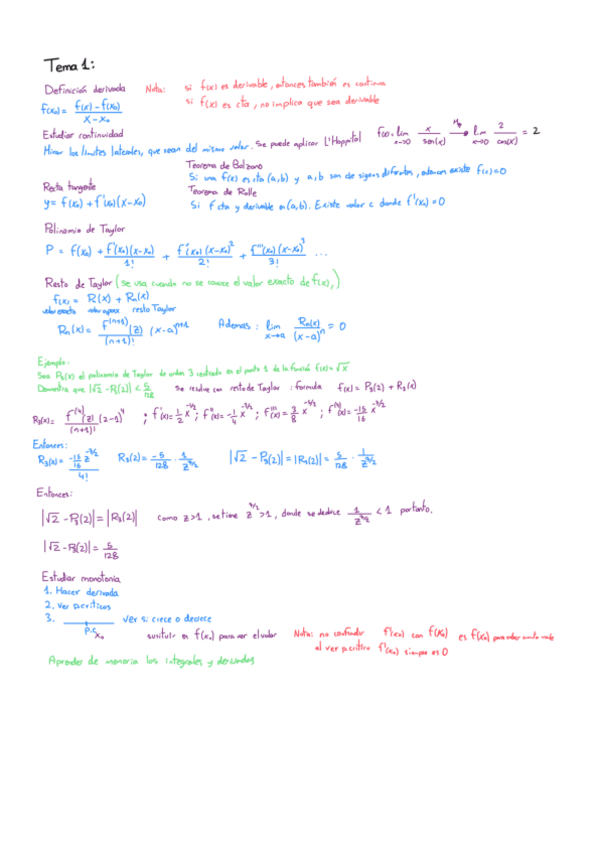 Tema 1:
Definición derivada Nota: si f(x) es derivable, entonces también es continua
si f(x) es cta, no implica que sea derivable
f(x₀) = f(x) - f(x₀) / x - x₀
Estudiar continuidad
Mirar los límites laterales, que sean del mismo valor. Se puede aplicar L'Hoppital f(x) = lim x→0 x / sen(x) → lim x→0 2 / cos(x) = 2
Teorema de Bolzano
Si una f(x) es cta (a,b) y a,b son de signos diferentes, entonces existe f(c)=0
Recta tangente
Teorema de Rolle
y = f(x₀) + f'(x₀)(x-x₀)
Si f cta y derivable en (a,b). Existe valor c donde f'(x₀) = 0
Polinomio de Taylor
P = f(x₀) + f'(x₀)(x-x₀) / 1! + f''(x₀)(x-x₀)² / 2! + f'''(x₀)(x-x₀)³ / 3! ...
Resto de Taylor (se usa cuando no se conoce el valor exacto de f(x))
f(x) = R(x) + Rₙ(x)
valor exacto valor aprox resto Taylor
Rₙ(x) = f⁽ⁿ⁺¹⁾(z) / (n+1)! (x-a)ⁿ⁺¹ Ademas: lim x→a Rₙ(x) / (x-a)ⁿ = 0
Ejemplo:
Sea P₃(x) el polinomio de Taylor de orden 3 centrado en el punto 1 de la función f(x)=√x
Demuestra que |√2 - P₃(2)| < 5/128 Se resolve con resto de Taylor : formula f(x) = P₃(2) + R₃(x)
R₃(x) = f⁽⁴⁾(z)(2-1)⁴ / (n+1)! ; f'(x)= 1/2 x^-1/2 ; f''(x)= -1/4 x^-3/2 ; f'''(x)= 3/8 x^-5/2 ; f⁽⁴⁾(x)= -15/16 x^-7/2
Entonces:
R₃(x) = -15/16 z^-7/2 / 4! R₃(2) = -5/128 · 1/z^7/2 |√2 - P₃(2)| = |R₃(2)| = 5/128 · 1/z^7/2
Entonces:
|√2 - P₃(2)| = |R₃(2)| como z>1, se tiene z^7/2 >1, donde se deduce 1/z^7/2 < 1 portanto,
|√2 - P₃(2)| = 5/128
Estudiar monotonía
1. Hacer derivada
2. Ver p.críticos
3. ver si crece o decrece
P.C x₀ sustituir en f(x₀) para ver el valor Nota: no confundir f'(x₀) con f(x₀) es f(x₀) para saber
al ver p.crítico f'(x₀) siempre es 0
Aprender de memoria las integrales y derivadas